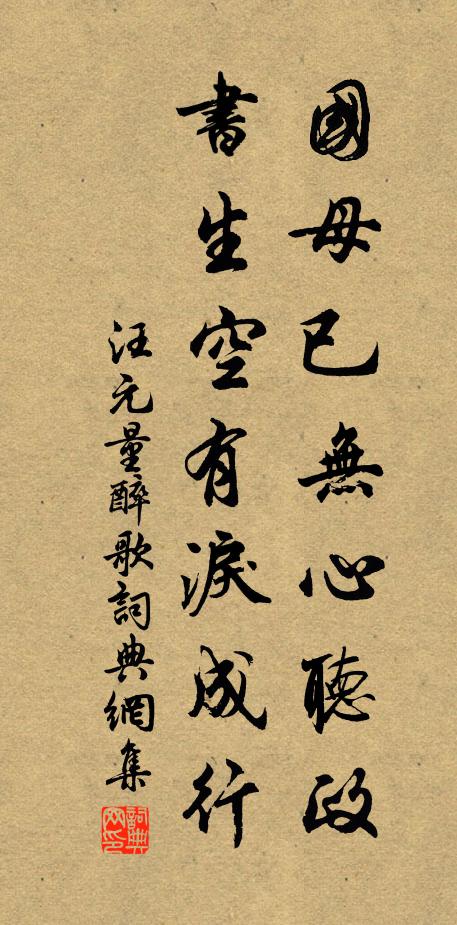 國母已無心聽政
書生空有淚成行
汪元量醉歌詞典網集
詞典网印